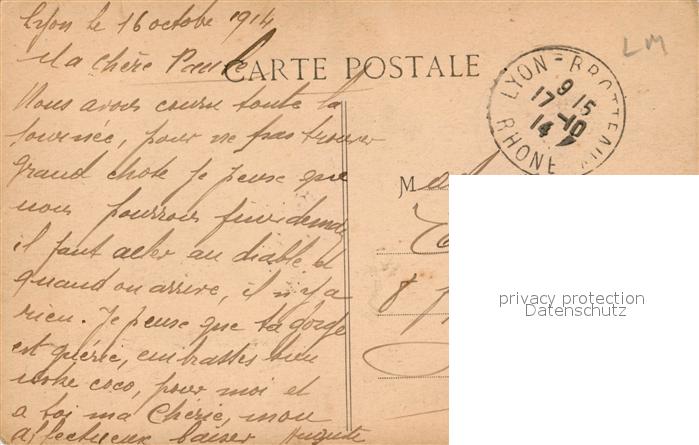 Lyon le 16 octobre 1914
LM
Ma Chère Paule
CARTE POSTALE
LYON-BROTTEAUX
9 15
17-10
14
RHONE
Nous avons couru toute la
tournée, pour ne pas trouver
grand chose je pense que
nous pourrons finir demain
il faut aller au diable et
quand on arrive, il n'y a
rien. Je pense que ta gorge
est guérie, embrasses bien
notre coco, pour moi et
a toi ma Chérie, mon
affectueux baiser Auguste
M
8
privacy protection
Datenschutz